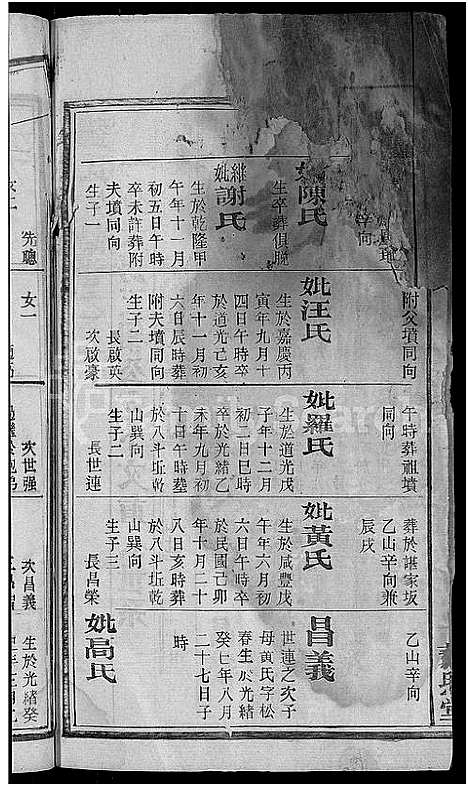 辛向
妣陳氏
生卒葬俱脫
継妣謝氏
生於乾隆甲
午年十一月
初五日午時
卒未許葬附
夫墳同向
生子一
附父墳同向
妣汪氏
生於嘉慶丙
寅年九月十
四日午時卒
於道光己亥
年十一月初
六日辰時葬
附夫墳同向
生子二
長啟英
次啟豪
午時葬祖墳
同向
妣羅氏
生於道光戊
子年十二月
初二日巳時
卒於光緒乙
未年九月初
十日午時葬
於八斗坵乾
山巽向
生子二
長世連
葬於諶家坂
乙山辛向兼
辰戌
妣黃氏
生於咸豐戊
午年六月初
六日午時卒
於民國己卯
年十月二十
八日亥時葬
於八斗坵乾
山巽向
生子三
長昌榮
乙山辛向
昌義
世連之次子
母黃氏字松
春生於光緒
癸亡年八月
二十七日子
時
妣高氏
先聰
女一
次世强
次昌義
生於光緒癸